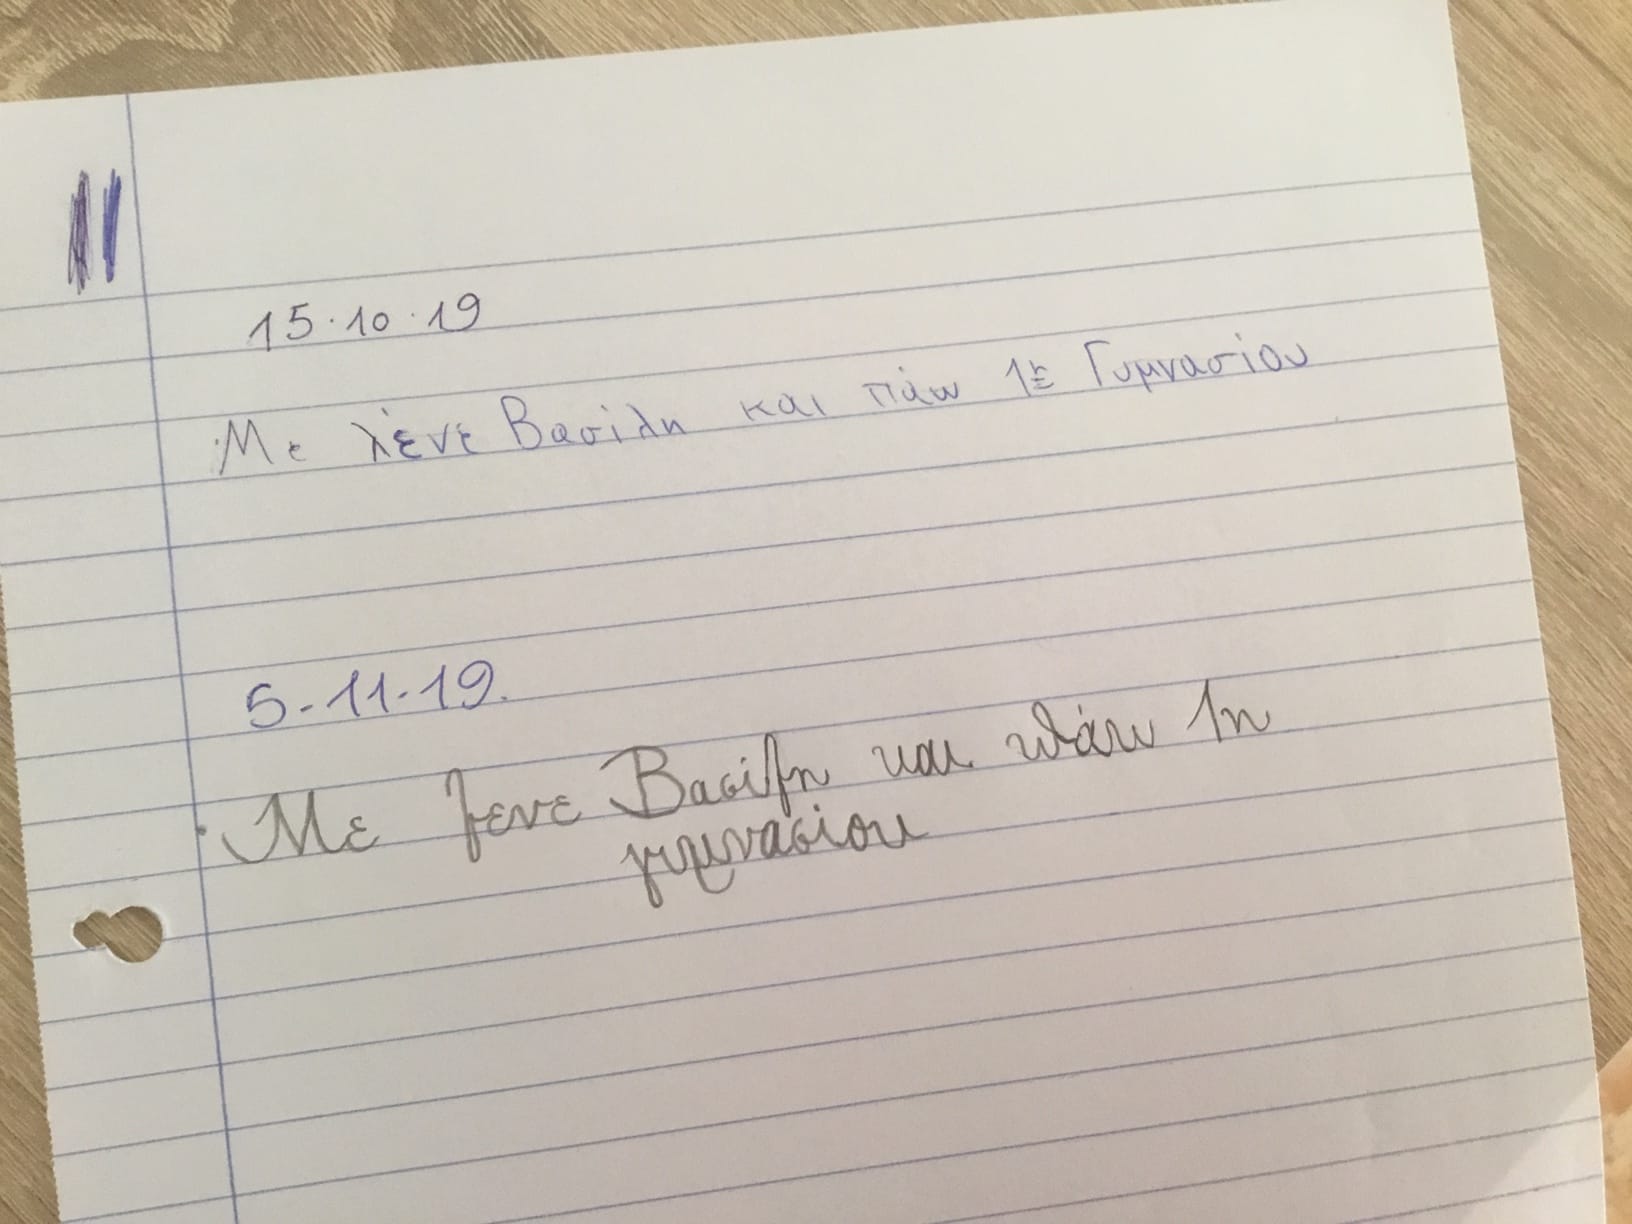 15.10.19
Με λένε Βασίλη και πάω 1η Γυμνασίου
5-11-19.
Με λενε Βασίλη και πάω 1η
γυμνασίου